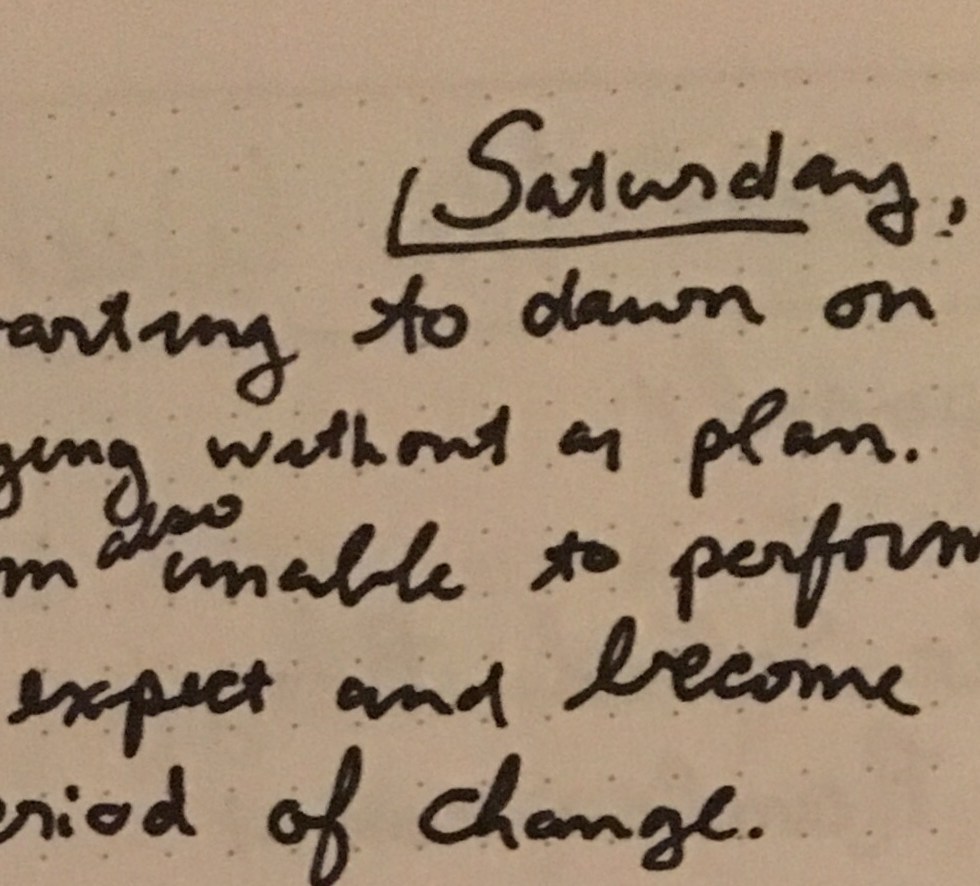 Saturday,
arting to dawn on
ging without a plan.
m also unable to perform
expect and become
eriod of change.